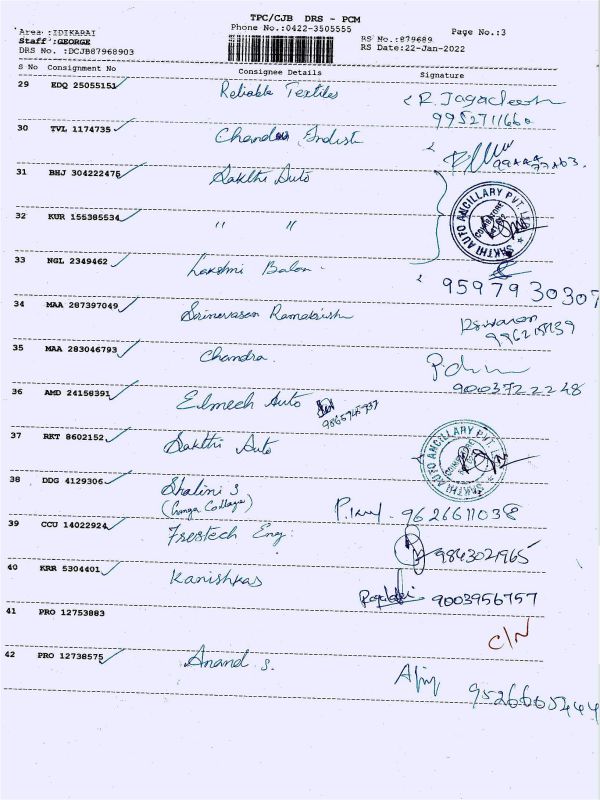 TPC/CJB DRS - PCM
Phone No.:0422-3505555
Area :IDIKARAI
Staff :GEORGE
DRS No. :DCJB87968903
RS No.:879689
RS Date:22-Jan-2022
Page No.:3
S No Consignment No Consignee Details Signature
29 EDQ 25055151 Reliable Textiles R. Jagadeesh
9952711660
30 TVL 1174735
31 BHJ 304222475 Sakthi Auto
SAKTHI AUTO ANCILLARY PVT. LTD
COIMBATORE
32 KUR 155385534 " "
33 NGL 2349462 Lakshmi Balan
9597930307
34 MAA 287397049 Srinivasan Ramakrish
35 MAA 283046793 Chandra
9003722248
36 AMD 24158391 Elmech Auto
37 RKT 8602152 Sakthi Auto
SAKTHI AUTO ANCILLARY PVT. LTD
38 DDG 4129306 Shalini S
(Ganga Collage) 9626611038
39 CCU 14022924 Frestech Eng.
9843021965
40 KRR 5304401 Kanishkas 9003956757
41 PRO 12753883 C/N
42 PRO 12738575 Anand S.